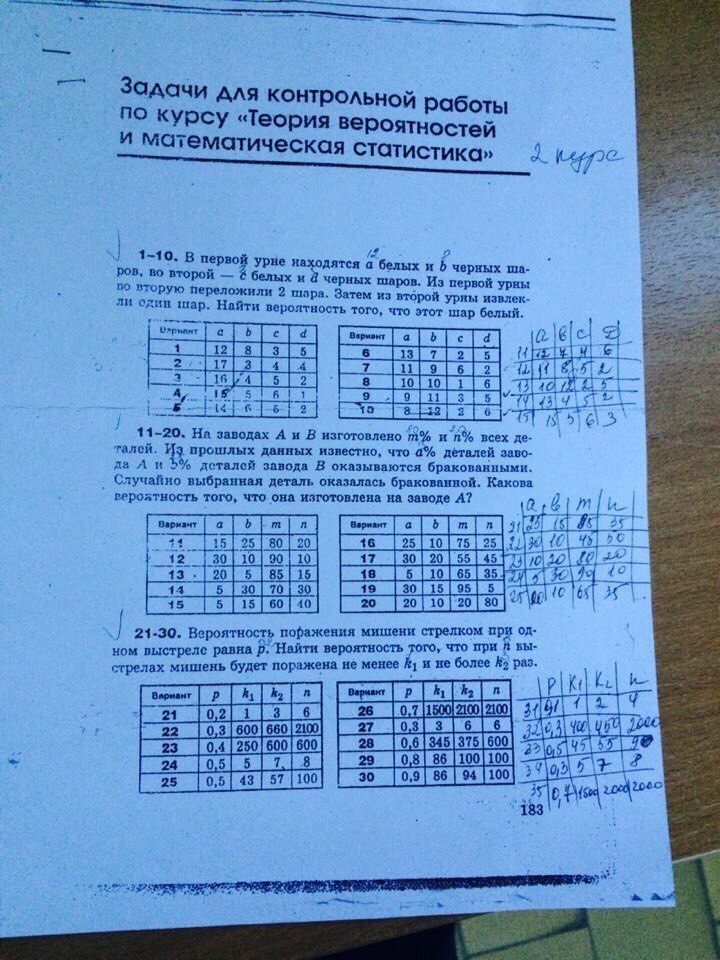 Задачи для контрольной работы
по курсу «Теория вероятностей
и математическая статистика»
2 курс
12 8
1–10. В первой урне находятся a белых и b черных ша-
ров, во второй — c белых и d черных шаров. Из первой урны
во вторую переложили 2 шара. Затем из второй урны извлек-
ли один шар. Найти вероятность того, что этот шар белый.
Вариант a b c d
1 12 8 3 5
2 17 3 4 4
3 16 4 5 2
4 15 5 6 1
5 14 6 5 2
Вариант a b c d
6 13 7 2 5
7 11 9 6 2
8 10 10 1 6
9 9 11 3 5
10 8 12 2 6
a b c d
11 12 4 6
12 11 8 5 2
13 10 12 2 5
14 13 4 5 2
15 15 5 6 3
11–20. На заводах A и B изготовлено m% и n% всех де-
талей. Из прошлых данных известно, что a% деталей заво-
да A и b% деталей завода B оказываются бракованными.
Случайно выбранная деталь оказалась бракованной. Какова
вероятность того, что она изготовлена на заводе A?
Вариант a b m n
11 15 25 80 20
12 30 10 90 10
13 20 5 85 15
14 5 30 70 30
15 5 15 60 40
Вариант a b m n
16 25 10 75 25
17 30 20 55 45
18 5 10 65 35
19 30 15 95 5
20 20 10 20 80
a b m n
21 25 15 35
22 30 10 45 50
23 10 20 80 20
24 5 30 90 10
25 20 10 65 35
21-30. Вероятность поражения мишени стрелком при од-
ном выстреле равна p. Найти вероятность того, что при n вы-
стрелах мишень будет поражена не менее k1 и не более k2 раз.
Вариант p k1 k2 n
21 0,2 1 3 6
22 0,3 600 660 2100
23 0,4 250 600 600
24 0,5 5 7 8
25 0,5 43 57 100
Вариант p k1 k2 n
26 0,7 1500 2100 2100
27 0,3 3 6 6
28 0,6 345 375 600
29 0,8 86 100 100
30 0,9 86 94 100
P K1 K2 n
31 0,1 1 2 4
32 0,3 400 450 2000
33 0,5 45 55
34 0,3 5 7 8
35 0,7 1500 2000 2000
183